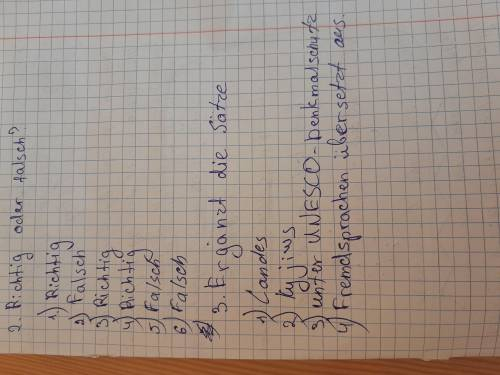 2. Richtig oder falsch?
1) Richtig
2) Falsch
3) Richtig
4) Richtig
5) Falsch
6) Falsch
3. Ergänzt die Sätze
1) Landes
2) Kyjiws
3) unter UNESCO-Denkmalschutz
4) Fremdsprachen übersetzt aus.